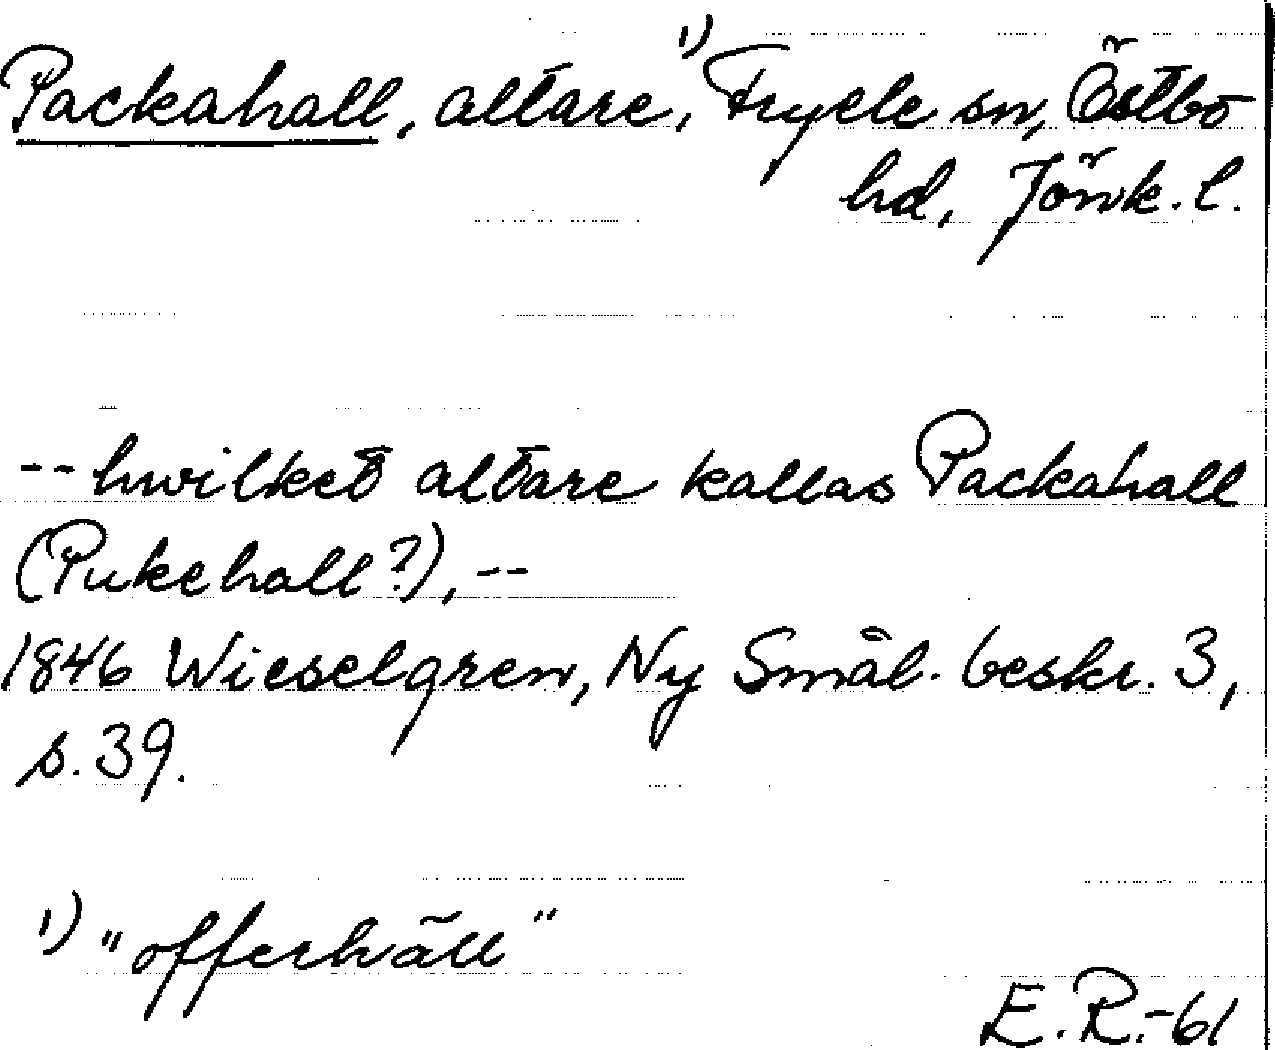 Packahall, altare,¹⁾ Fryele sn, Östbo
hd, Jönk. l.
-- hwilket altare kallas Packahall
(Pukehall?), --
1846 Wieselgren, Ny Smål. beskr. 3,
s. 39.
¹⁾ "offerhäll"
E. R. -61